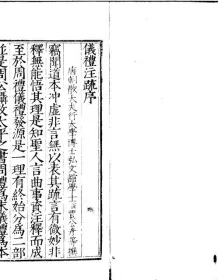 儀禮注疏序
唐朝散大夫行大學博士弘文館學士臣賈公彥等撰
竊聞道本沖虛非言無以表其疏言有微妙非
釋無能悟其理是知聖人言曲事資注釋而成
至於周禮儀禮發源是一理有終始分爲二部
並是周公攝政大平之書周禮爲末儀禮爲本